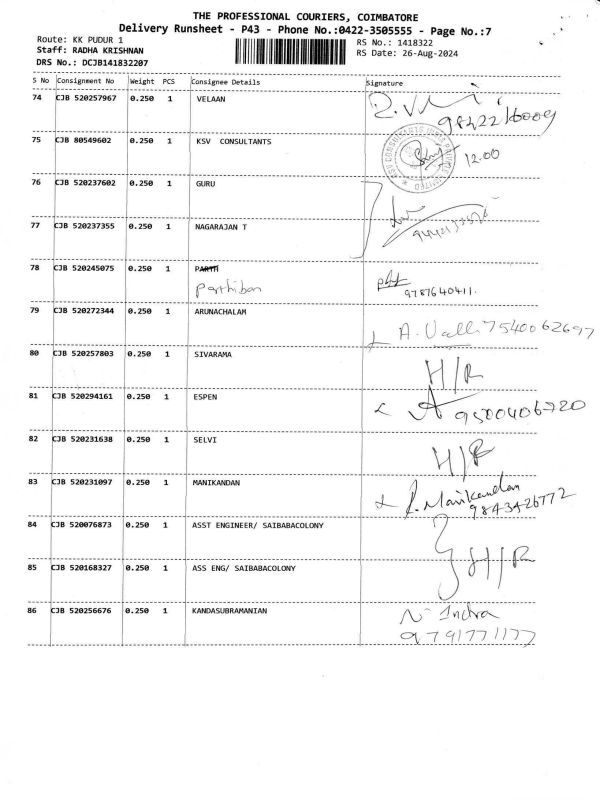 THE PROFESSIONAL COURIERS, COIMBATORE
Delivery Runsheet - P43 - Phone No.:0422-3505555 - Page No.:7
Route: KK PUDUR 1
RS No.: 1418322
Staff: RADHA KRISHNAN
RS Date: 26-Aug-2024
DRS No.: DCJB141832207
S No Consignment No Weight PCS Consignee Details Signature
74 CJB 520257967 0.250 1 VELAAN
75 CJB 80549602 0.250 1 KSV CONSULTANTS 12.00
76 CJB 520237602 0.250 1 GURU
77 CJB 520237355 0.250 1 NAGARAJAN T
78 CJB 520245075 0.250 1 PARTH
Parthiban 9787640411.
79 CJB 520272344 0.250 1 ARUNACHALAM A. Valli 7540062697
80 CJB 520257803 0.250 1 SIVARAMA H/R
81 CJB 520294161 0.250 1 ESPEN 9500406720
82 CJB 520231638 0.250 1 SELVI H/R
83 CJB 520231097 0.250 1 MANIKANDAN P. Manikandan
9843426772
84 CJB 520076873 0.250 1 ASST ENGINEER/ SAIBABACOLONY
85 CJB 520168327 0.250 1 ASS ENG/ SAIBABACOLONY H/R
86 CJB 520256676 0.250 1 KANDASUBRAMANIAN N. Indra
9791771177